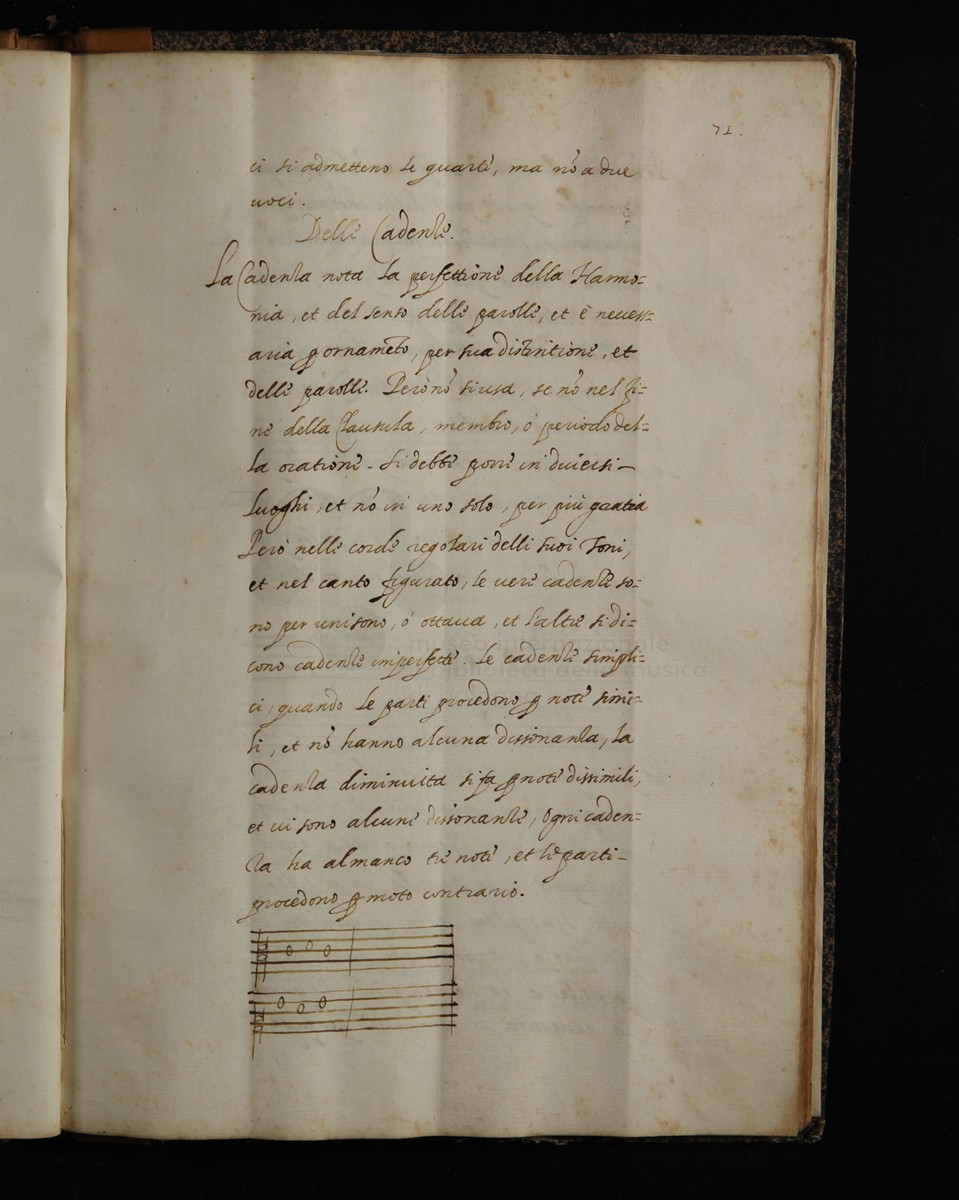 71.
ci si admetteno le quarte, ma nõ a due
uoci.
Delle Cadenze.
La Cadenza nota la perfettione della Harmo=
nia, et del senso delle parolle, et è necess=
aria ꝑ ornamẽto, per sua distintione, et
delle parolle. Però nõ si usa, se nõ nel fi=
ne della Clausula, membro, ò periodo del=
la oratione. Si debbe porre in diuersi
luoghi, et nõ in uno solo, per più gratia
Però nelle corde regolari delli suoi Toni,
et nel canto figurato, le uere cadenze so=
no per unisono, ò ottaua, et l'altre si di=
cono cadenze imperfette. Le cadenze simpli=
ci, quando le parti procedono ꝑ note simi=
li, et nõ hanno alcuna dissonanza, la
cadenza diminuita si fa ꝑ note dissimili,
et ui sono alcune dissonanze, Ogni caden=
za ha almanco tre note, et le parti
procedono ꝑ moto contrario.